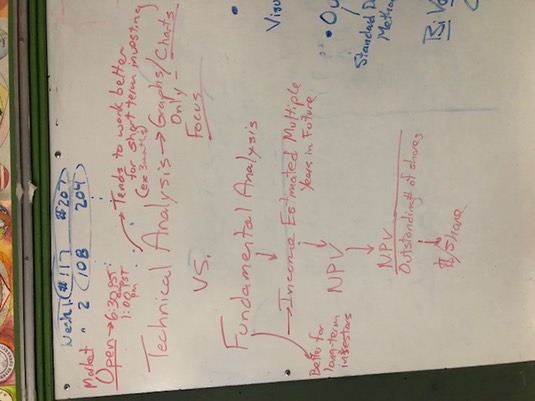 Week 1 #117 #207
" 2 108 204
Market
Open → 6:30 PST
1:00 PST
pm
→ Tends to work better
for short term investing
(ex 3 months)
Technical Analysis → Graphs/Charts
Only
Focus
VS.
Fundamental Analysis
→ Income Estimated Multiple
Years in Future
Better for
long-term
investors
NPV
NPV
Outstanding # of shares
$/Share
Visu
• Ou
Standard D
Metho
BiV